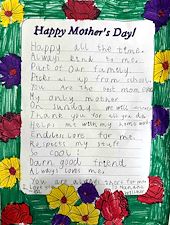 Happy Mother's Day!
Happy all the time.
Always kind to me.
Part of our family.
Picks us up from school.
You are the best mom
My only mother
On Sunday we will
Thank you for all you do
Helps me with my home work
Endless love for me.
Respects my stuff.
So cool!
Darn good friend
Always loves me.
You are always there for me
I love you